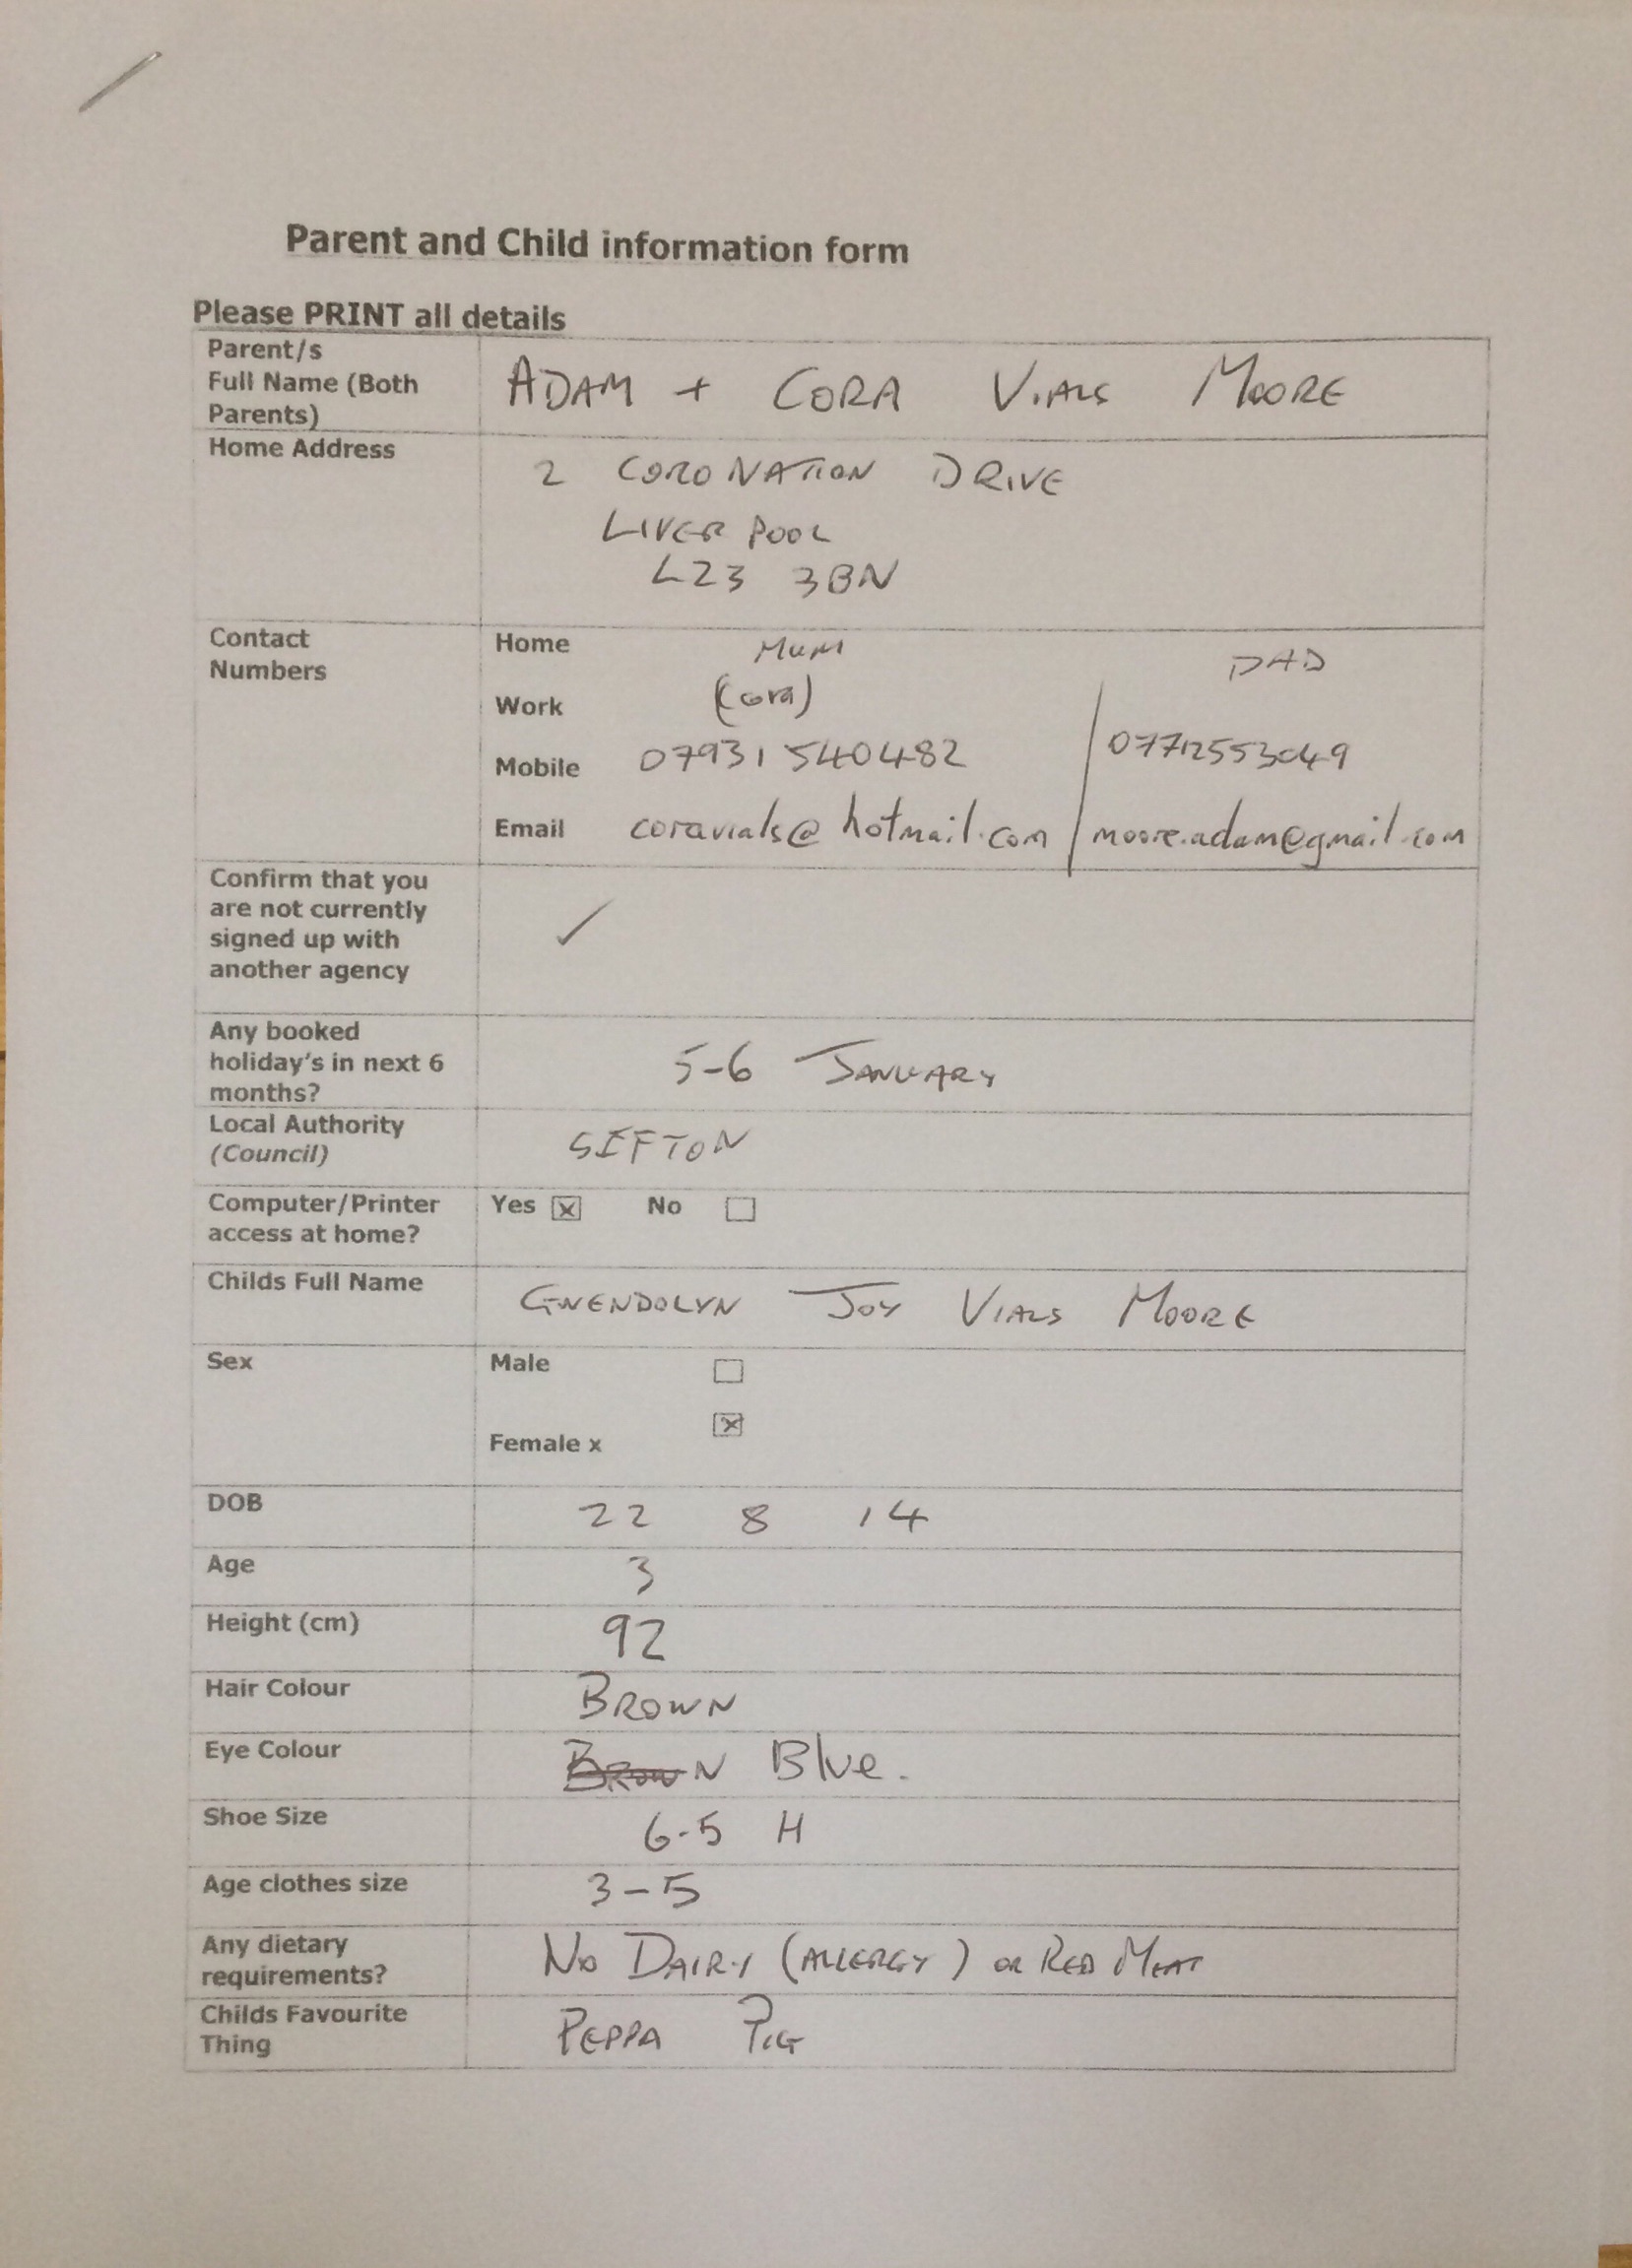 Parent and Child information form
Please PRINT all details
Parent/s
Full Name (Both
Parents)
ADAM + CORA VIALS MOORE
Home Address
2 CORONATION DRIVE
LIVERPOOL
L23 3BN
Contact
Numbers
Home
MUM
DAD
Work
(Cora)
Mobile
07931540482
07712553049
Email
coravials@hotmail.com
moore.adam@gmail.com
Confirm that you
are not currently
signed up with
another agency
✓
Any booked
holiday's in next 6
months?
5-6 JANUARY
Local Authority
(Council)
SEFTON
Computer/Printer
access at home?
Yes ☒ No ☐
Childs Full Name
GWENDOLYN JOY VIALS MOORE
Sex
Male ☐
Female x ☒
DOB
22 8 14
Age
3
Height (cm)
92
Hair Colour
BROWN
Eye Colour
BROWN Blue.
Shoe Size
6.5 H
Age clothes size
3-5
Any dietary
requirements?
NO DAIRY (ALLERGY) OR RED MEAT
Childs Favourite
Thing
PEPPA PIG